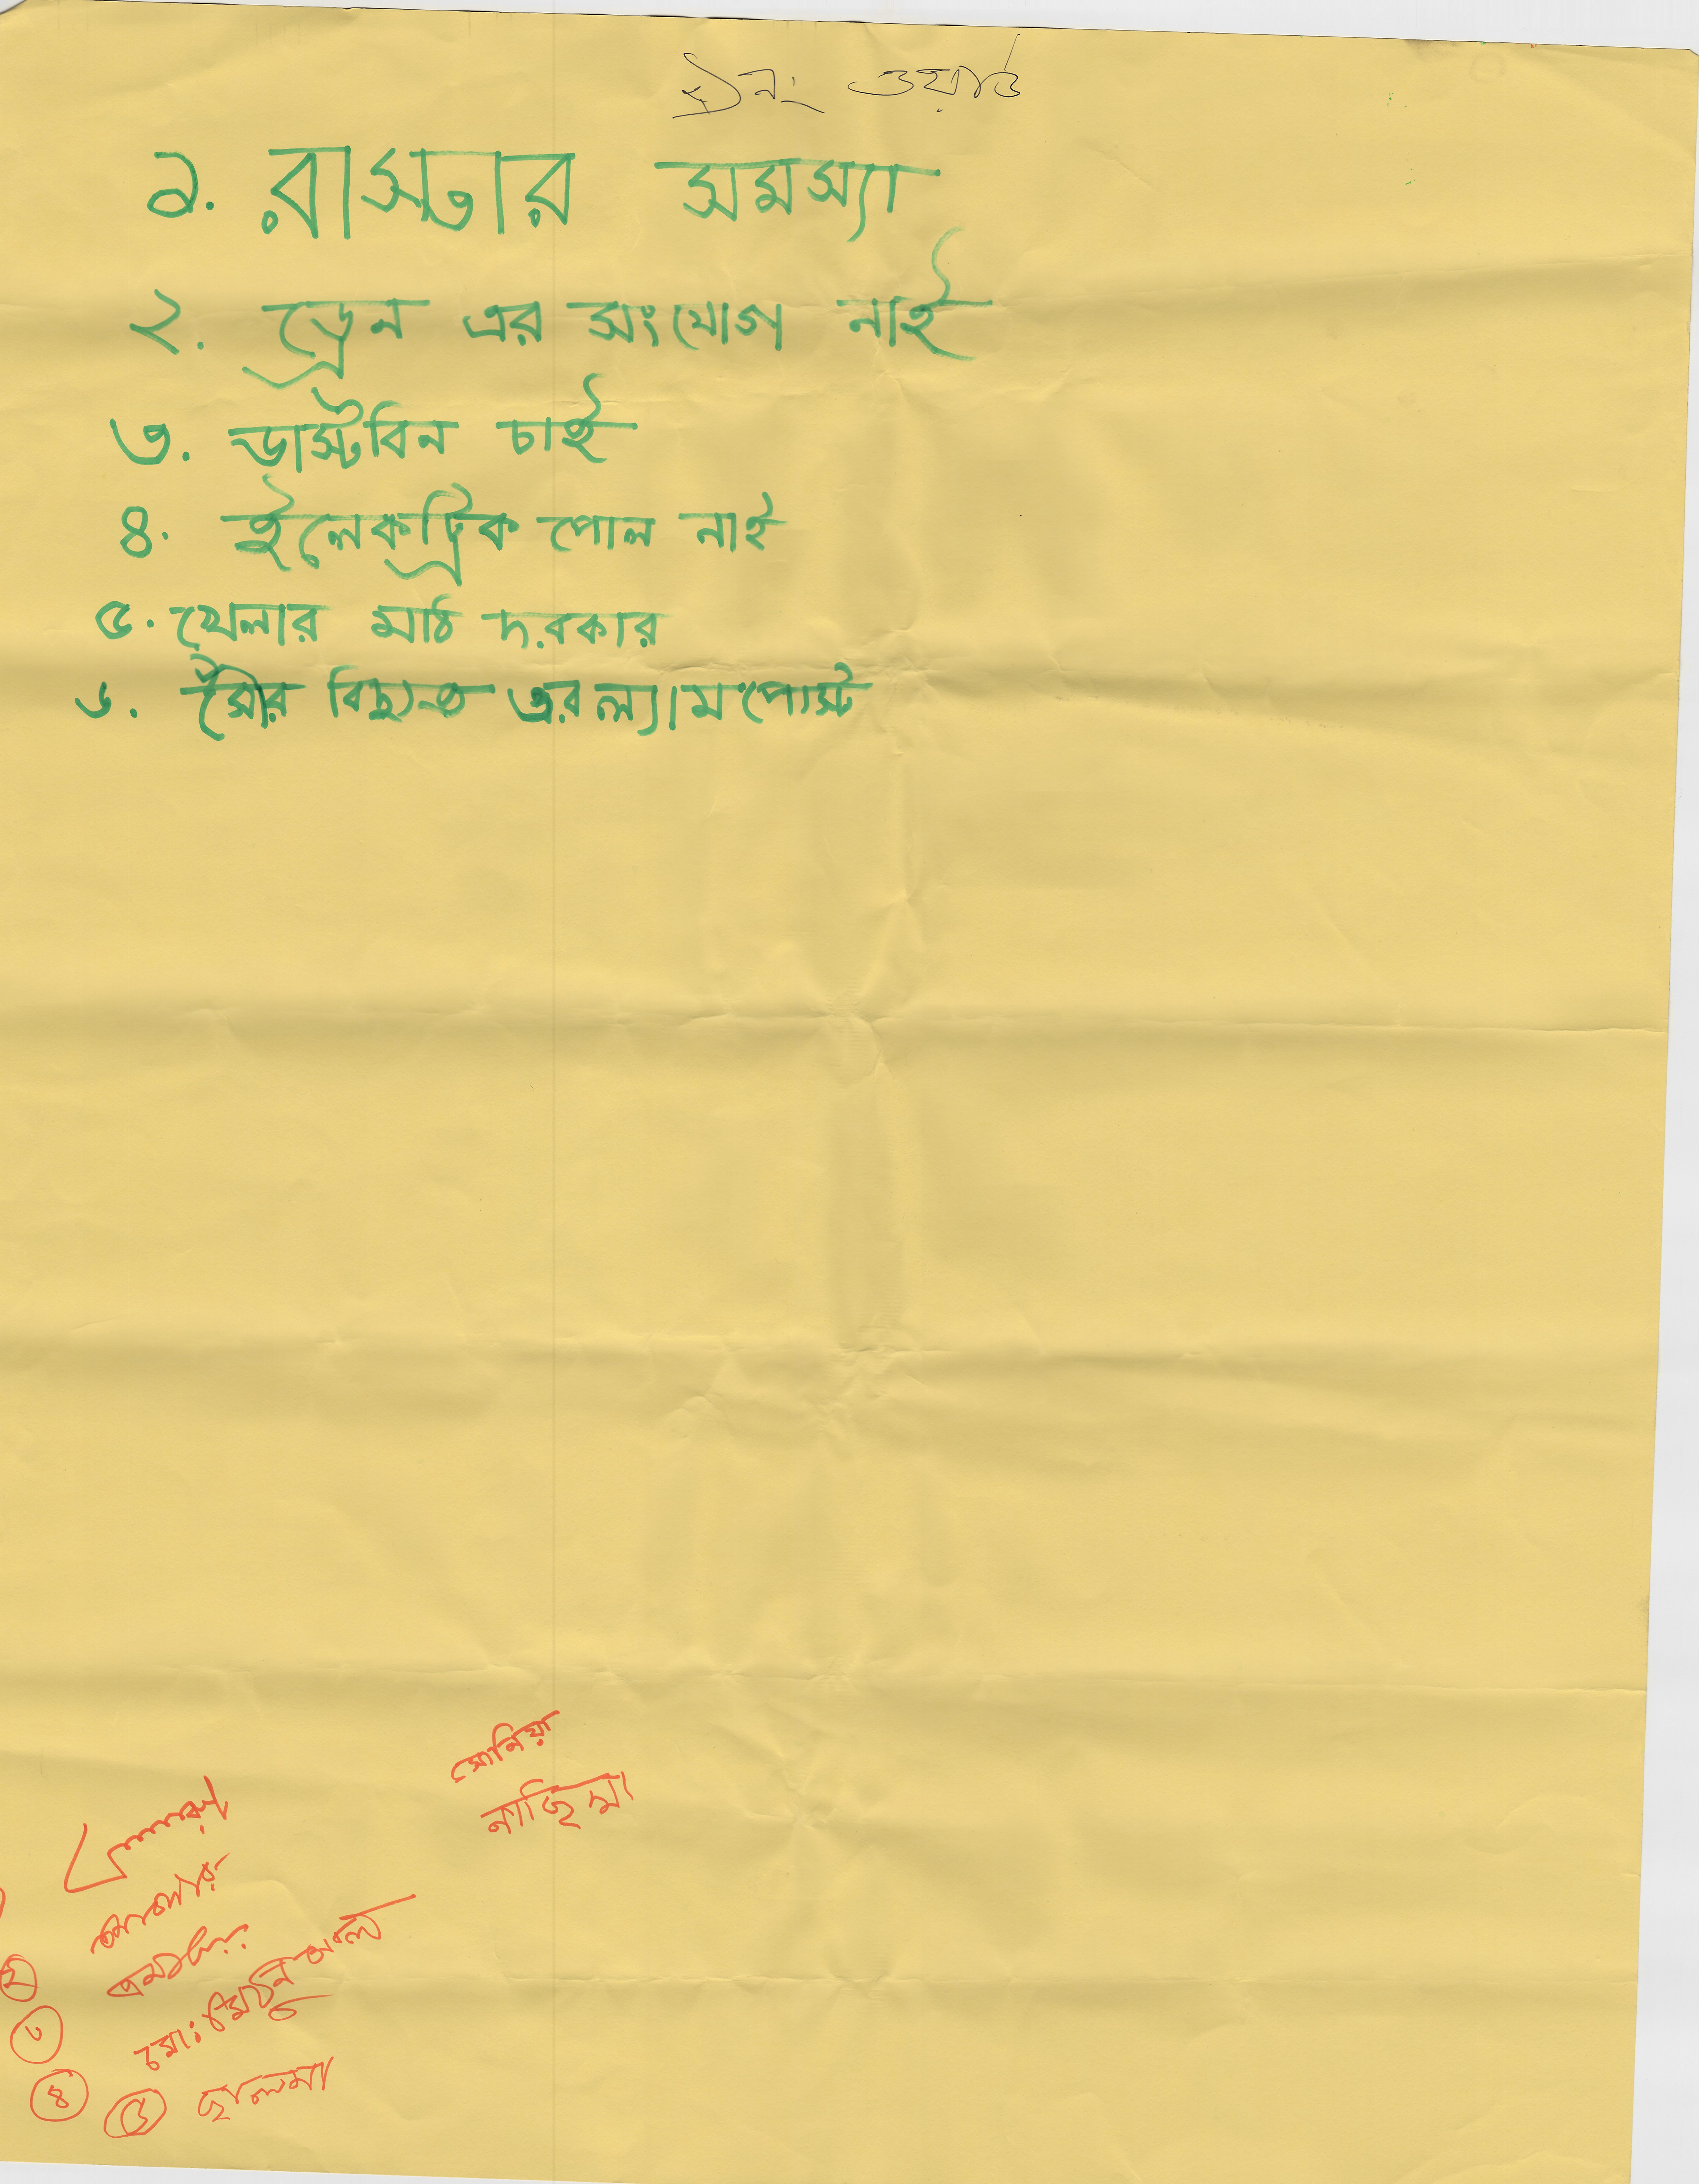 নং ওয়ার্ড
১. রাস্তার সমস্যা
২. ড্রেন এর সংযোগ নাই
৩. ডাস্টবিন চাই
৪. ইলেকট্রিক পোল নাই
৫. খেলার মাঠ দরকার
৬. সৌর বিদ্যুত এর ল্যামপোস্ট
সোনিয়া
নাছিমা
২
৩
মোঃ
৪ ৫ ছালমা